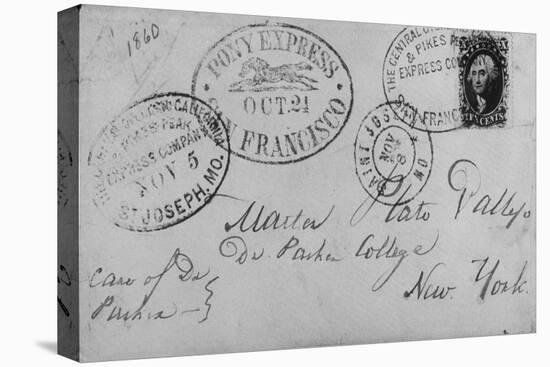 1860
PONY EXPRESS
OCT. 21
SAN FRANCISCO
THE CENTRAL
& PIKES PEAK
EXPRESS COMPANY
SAN FRANCISCO
TEN CENTS
CALIFORNIA
& PIKES PEAK
EXPRESS COMPANY
NOV 5
ST JOSEPH, MO.
SAINT JOSEPH MO
NOV
8
Master Plato Vallejo
Dr. Parker College
New. York.
Care of Dr
Parker